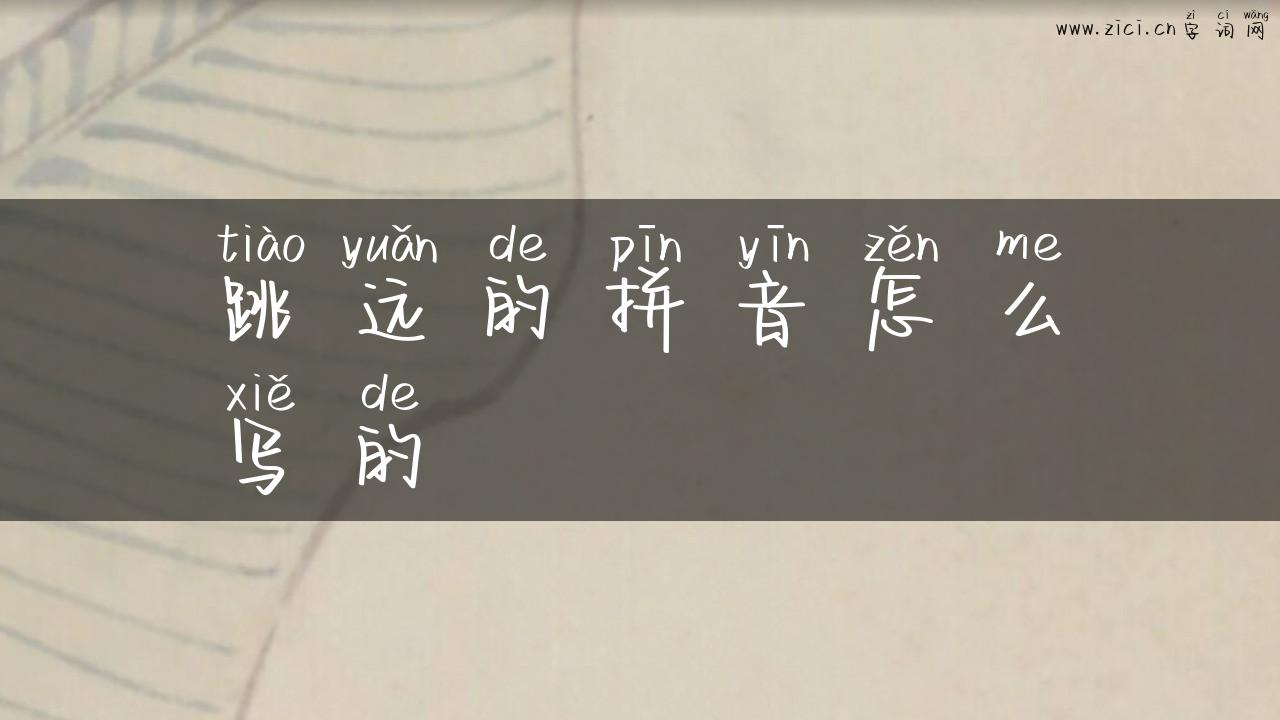 zì cí wǎng
www.zici.cn 字 词 网
tiào yuǎn de pīn yīn zěn me
跳 远 的 拼 音 怎 么
xiě de
写 的